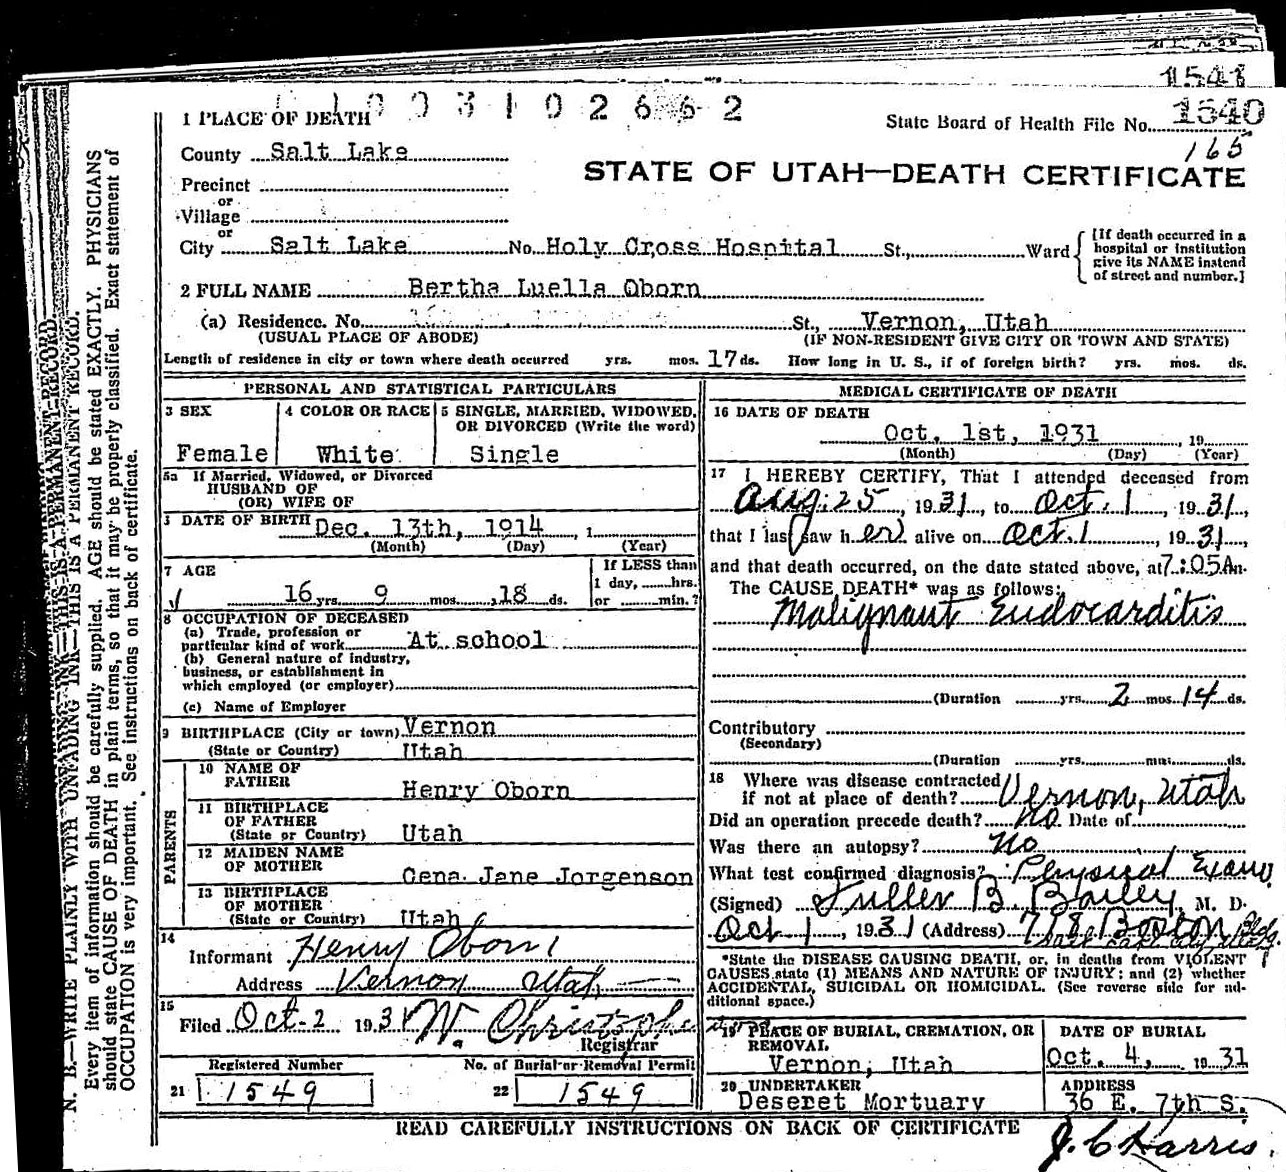 1541
1003102662
1540
1 PLACE OF DEATH
State Board of Health File No. 1540
165
County Salt Lake
STATE OF UTAH—DEATH CERTIFICATE
Precinct
or
Village
or
City Salt Lake No. Holy Cross Hospital St., Ward
[If death occurred in a hospital or institution give its NAME instead of street and number.]
2 FULL NAME Bertha Luella Oborn
(a) Residence. No. St., Vernon, Utah
(USUAL PLACE OF ABODE) (IF NON-RESIDENT GIVE CITY OR TOWN AND STATE)
Length of residence in city or town where death occurred yrs. mos. 17 ds. How long in U. S., if of foreign birth? yrs. mos. ds.
PERSONAL AND STATISTICAL PARTICULARS
3 SEX
Female
4 COLOR OR RACE
White
5 SINGLE, MARRIED, WIDOWED,
OR DIVORCED (Write the word)
Single
5a If Married, Widowed, or Divorced
HUSBAND OF
(OR) WIFE OF
DATE OF BIRTH Dec. 13th, 1914, 1
(Month) (Day) (Year)
7 AGE
16 yrs. 9 mos. 18 ds.
If LESS than
1 day, hrs.
or min.?
8 OCCUPATION OF DECEASED
(a) Trade, profession or
particular kind of work At school
(b) General nature of industry,
business, or establishment in
which employed (or employer)
(c) Name of Employer
9 BIRTHPLACE (City or town) Vernon
(State or Country) Utah
PARENTS
10 NAME OF
FATHER Henry Oborn
11 BIRTHPLACE
OF FATHER
(State or Country) Utah
12 MAIDEN NAME
OF MOTHER Cena Jane Jorgenson
13 BIRTHPLACE
OF MOTHER
(State or Country) Utah
14
Informant Henry Oborn
Address Vernon Utah
15
Filed Oct-2 1931 W. Christophe
Registrar
Registered Number
21 1549
No. of Burial or Removal Permit
22 1549
MEDICAL CERTIFICATE OF DEATH
16 DATE OF DEATH
Oct. 1st, 1931, 19
(Month) (Day) (Year)
17 I HEREBY CERTIFY, That I attended deceased from
Aug. 25, 1931, to Oct. 1, 1931,
that I last saw her alive on Oct. 1, 1931,
and that death occurred, on the date stated above, at 7:05 A m.
The CAUSE DEATH* was as follows:
Malignant Endocarditis
(Duration yrs. 2 mos. 14 ds.
Contributory
(Secondary)
(Duration yrs. mos. ds.
18 Where was disease contracted
if not at place of death? Vernon, Utah
Did an operation precede death? No Date of
Was there an autopsy? No
What test confirmed diagnosis? Physical Exam.
(Signed) Fuller B. Bailey, M. D.
Oct 1, 1931 (Address) 718 Boston Bldg.
Salt Lake City, Utah
*State the DISEASE CAUSING DEATH, or, in deaths from VIOLENT
CAUSES state (1) MEANS AND NATURE OF INJURY; and (2) whether
ACCIDENTAL, SUICIDAL OR HOMICIDAL. (See reverse side for ad-
ditional space.)
19 PLACE OF BURIAL, CREMATION, OR
REMOVAL
Vernon, Utah
DATE OF BURIAL
Oct. 4, 1931
20 UNDERTAKER
Deseret Mortuary
ADDRESS
36 E. 7th S.
READ CAREFULLY INSTRUCTIONS ON BACK OF CERTIFICATE
J. C. Harris.
N. B.—WRITE PLAINLY WITH UNFADING INK—THIS IS A PERMANENT RECORD.
Every item of information should be carefully supplied. AGE should be stated EXACTLY. PHYSICIANS
should state CAUSE OF DEATH in plain terms, so that it may be properly classified. Exact statement of
OCCUPATION is very important. See instructions on back of certificate.